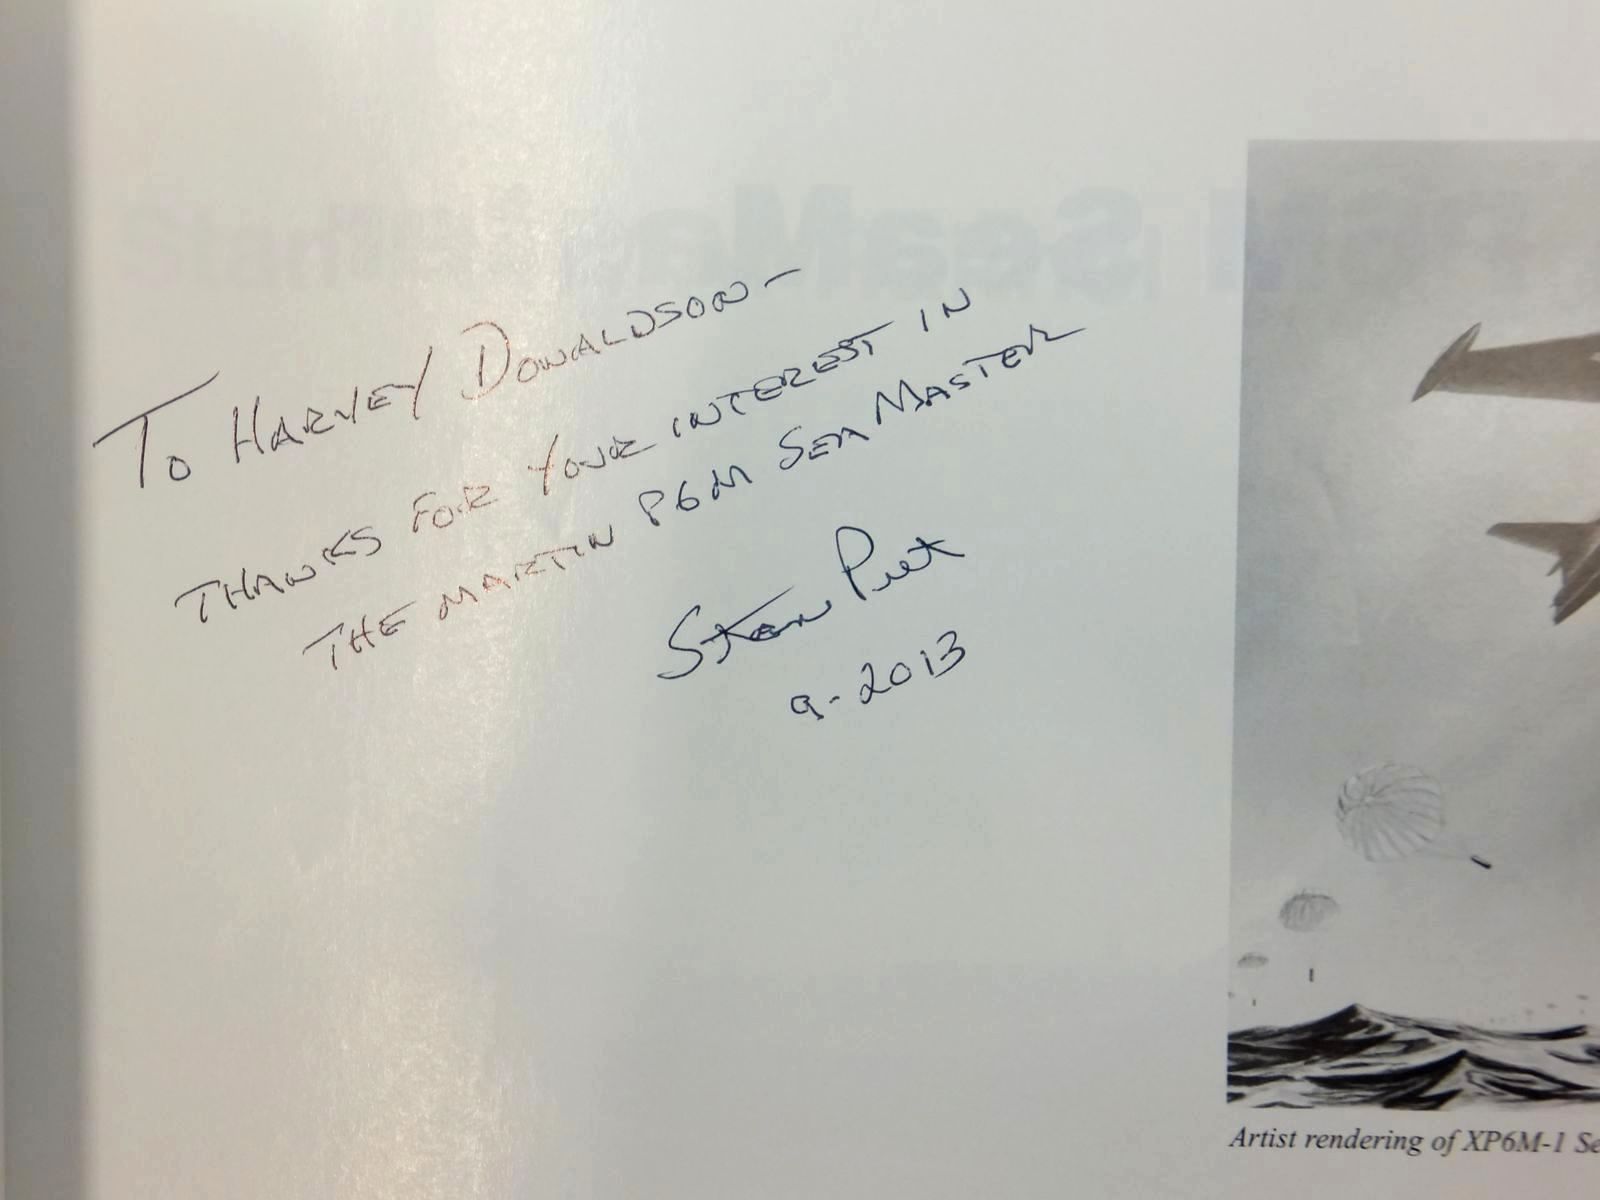 To Harvey Donaldson-
Thanks for your interest in
the Martin P6M SeaMaster
Stan Piet
9-2013
Artist rendering of XP6M-1 Se